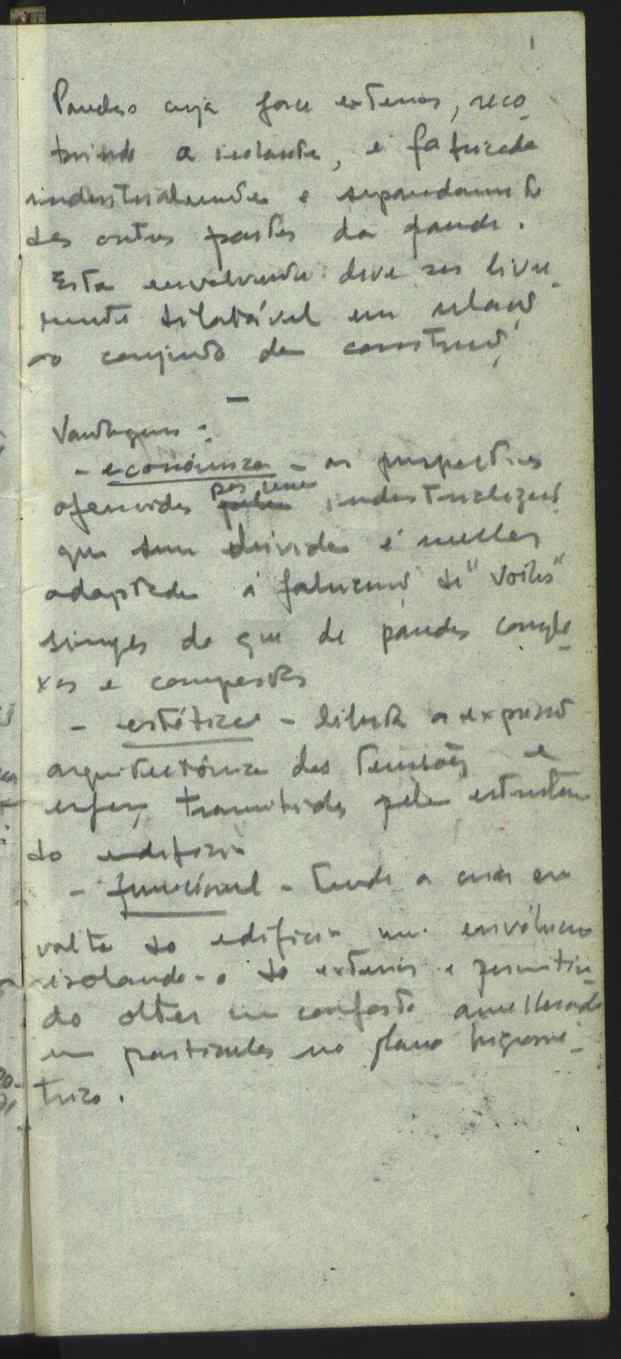 1
Paredes cuja face exterior, reco-
brindo a isolante, é fabricada
industrialmente e separadamente
das outras partes da parede.
Esta envolvente deve ser livre-
mente dilatável em relação
ao conjunto da construção
—
Vantagens:
- económica - as perspectivas
oferecidas por uma industrialização
que sem dúvida é melhor
adaptada à fabricação de "voiles"
simples do que de paredes comple-
xas e compostas
- estética - liberta a expressão
arquitectónica das tensões e
transmitidos pela estrutura
do edifício
- funcional - tende a criar em
volta do edifício um invólucro
isolando-o do exterior e permitin-
do obter um conforto amelhorado
em particular no plano higromé-
trico.